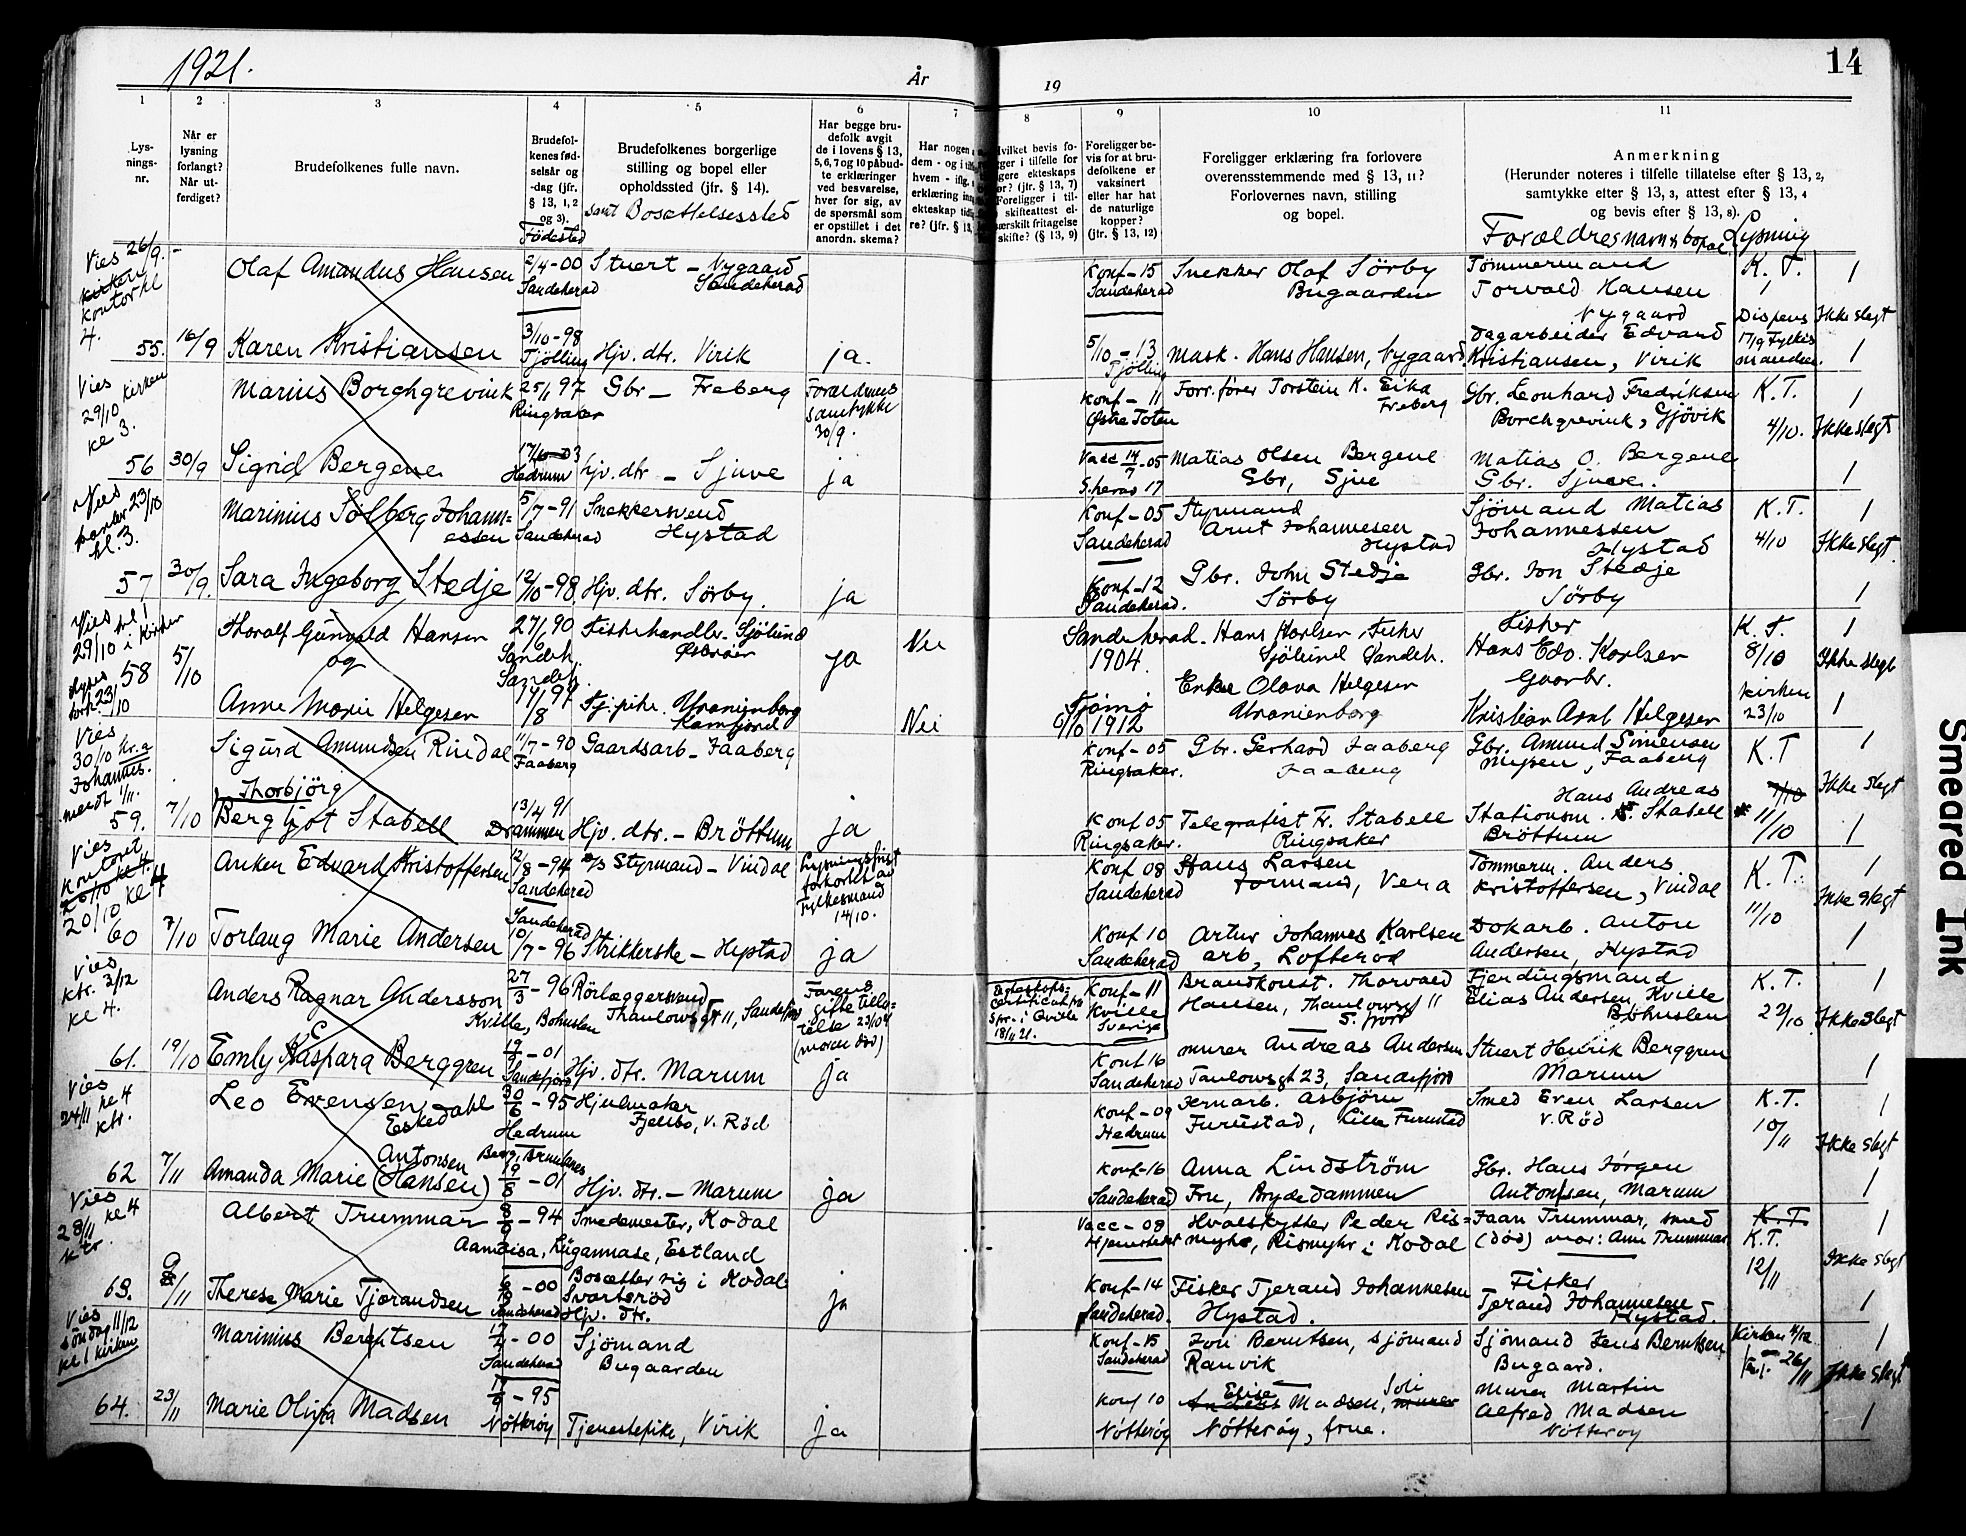 1921.
År
19
14
1
2
3
4
5
6
7
8
9
10
11
Lys-
nings-
nr.
Når er
lysning
forlangt?
Når ut-
ferdiget?
Brudefolkenes fulle navn.
Brudefol-
kenes fød-
selsår og
-dag (jfr.
§ 13, 1, 2
og 3).
Fødested
Brudefolkenes borgerlige
stilling og bopel eller
opholdssted (jfr. § 14).
samt Bosættelsessted
Har begge bru-
defolk avgit
de i lovens § 13,
5, 6, 7 og 10 påbud-
te erklæringer
ved besvarelse,
hver for sig, av
de spørsmål som
er opstillet i det
anordn. skema?
Har nogen
dem - og i
hvem - iflg.
erklæring in
ekteskap
re? (jfr. § 13,
Hvilket bevis fo-
ger i tilfelle for
gere ekteskaps
or? (jfr. § 13, 7)
Foreligger i til-
skifteattest el-
særskilt fritagelse
skifte? (§ 13, 9)
Foreligger be-
vis for at bru-
defolkene er
vaksinert
eller har hat
de naturlige
kopper?
(jfr. § 13, 12)
Foreligger erklæring fra forlovere
overensstemmende med § 13, 11?
Forlovernes navn, stilling
og bopel.
Anmerkning
(Herunder noteres i tilfelle tillatelse efter § 13, 2,
samtykke efter § 13, 3, attest efter § 13, 4
og bevis efter § 13, 8).
Forældres navn & bopæl Lysning
Vies 26/9. -
kirken
kontor kl
4.
Olaf Amandus Hansen 2/4-00 Stuert - Nygaard
Sandeherad Sandeherad
Konf-15 Snekker Olaf Sörby Tömmermand K. T. 1
Sandeherad Bugaarden Torvald Hansen
Nygaard Dispens Ikke slegt
55. 16/9 Karen Kristiansen 3/10-98 Tjölling Hjv. dtr. Virik ja.
5/10-13 Tjölling Mask. Hans Hansen, Nygaard Dagarbeider Edvard Kristiansen, Virik 17/9 Fylkes manden. 1
Vies
29/10 kirken
kl 3.
Marius Borchgrevink 25/1 97 Gbr - Freberg Forældrenes
Ringsaker samtykke
30/9.
Konf-11 Forr.förer Torstein K. Eika Gbr. Leonhard Fredriksen K.T. 1
Østre Toten Freberg Borchgrevink, Gjövik 4/10. Ikke slegt
56 30/9 Sigrid Bergene 17/10-03 Hedrum Hjv. dtr - Sjuve ja
Vacc 14/7-05 Matias Olsen Bergene Matias O. Bergene
S.herad 17 Gbr, Sjue Gbr. Sjuve. 1
Vies
23/10
kl. 3.
Marinius Solberg Johann= 5/7-91 Snekkersvend
essen Sandeherad Hystad
Konf-05 Styrmand Sjömand Matias K.T. 1
Sandeherad Arnt Johannesen Johannessen
Hystad Hystad 4/10 Ikke slegt.
57 30/9. Sara Ingeborg Stedje 12/10-98 Hjv. dtr. Sörby. ja
Konf-12 Gbr. John Stedje Gbr. Jon Stedje
Sandeherad. Sörby Sörby 1
Vies kl 1
29/10 i kirken
Thoralf Gunvald Hansen 27/6 90 Fiskehandler. Sjölund
og Sandeh. ja Nei
58 5/10
Sandeherad. Hans Karlsen, Fisker Fisker K. T. 1
1904. Sjölund Sandeh. Hans Edv. Karlsen 8/10 Ikke slegt
23/10
Anne Marie Helgesen Sandeh. 17/8 97 Tj.pike. Uranienborg
Ramfjord Nei
Enke Olava Helgesen Gaarbr. Kirken
Tjömö 6/10 1912 Uranienborg Kristian Arnt Helgesen 23/10 1
Vies
30/10 Kr.a
Johannis.
meldt 1/11.
Sigurd Amundsen Rindal 11/7-90 Gaardsarb - Faaberg
Faaberg
Konf-05 Gbr. Gerhard Faaberg Gbr. Amund Simensen K.T 1
Ringsaker. Faaberg Mysen, Faaberg 7/10 Ikke slegt
59. 7/10 Thorbjörg
Bergljot Stabell 13/4 91 Drammen Hjv. dtr. - Bröttum ja
Konf 05 Telegrafist Fr. Stabell Hans Andreas
Stationsm. Stabell 11/10
Ringsaker. Ringsaker Bröttum 1
Vies
kontoret
20/10 kl 4
20/10 kl 4
Anker Edvard Kristoffersen 12/8-94 Styrmand - Vindal Lysningsfrist
Sandeherad forkortet av
Fylkesmand
14/10.
Konf 08 Hans Larsen Tömmerm. Anders K.T. 1
Sandeherad Formand, Vera Kristoffersen, Vindal 11/10 Ikke slegt
60 7/10 Torlaug Marie Andersen Sandeherad 10/7-96 Strikkerske - Hystad ja
Konf 10 Artur Johannes Karlsen Dokarb. Anton
Sandeherad arb, Lofterød Andersen, Hystad 1
Vies
ktr. 3/12
kl 4.
Anders Ragnar Andersson 27/3-96 Rörlæggersvend
Kville, Bohuslen Thaulowsgt 11, Sandefjord Farens
gifte tilla=
telse 23/10
(moren död)
Ekteskaps-
certificat fra
Spr. i Qville
18/11 21.
Konf-11 Brandkonst. Thorvald Fjerdingsmand K.T. 1
Kville Hansen, Thaulowsgt 11 Elias Andersen, Kville
Sverige S.fjord Bohuslen 22/10 Ikke slegt
61. 19/10 Emly Kaspara Berggren 19/9-01 Sandefjord Hjv. dtr. Marum ja
Konf 16 Murer Andreas Andersen Stuert Henrik Berggren
Sandeherad Taulowsgt 23, Sandefjord Marum 1
Vies
24/11 kl 4
ktr.
Leo Evensen 30/6-95 Hjulmaker
Eskedahl Hedrum Fjellbo, v. Röd
Konf-09 Jernarb. Asbjörn Smed Even Larsen K.T. 1
Hedrum Furustad, Lille Furustad v. Röd 10/11 Ikke slegt
62 7/11 Antonsen
Amanda Marie (Hansen) Berg, Brunlanes 19/8-01 Hjv. dtr. - Marum ja
Konf-16 Anna Lindström Gbr. Hans Jörgen
Sandeherad Fru, Brydedammen Antonsen, Marum 1
Vies
28/11 kl 4
ktr
Albert Trummar 8/9-94 Smedemester, Kodal
Aamdisa, Lüganuse, Estland
Vacc-08 Hvalskytter Peder Ris= Jaan Trummar, smed K.T. 1
Hjemstedet myhr, Rismyhr i Kodal (död) mor: Ann Trummar K.T.
12/11 Ikke slegt
63. 9/11 Therese Marie Tjerandsen 6/8-00 Sandeherad Bosætter sig i Kodal.
Svarteröd
Hjv. dtr. ja
Konf-14 Fisker Tjerand Johannesen Fisker
Sandeherad. Hystad. Tjerand Johannesen
Hystad. 1
Vies
söndag 11/12
kl 1 kirken
Marinius Berntsen 17/2-00 Sjömand
Sandeherad Bugaarden
Konf-15 Jon Berntsen, sjömand Sjömand Jens Berntsen Kirken 4/12 1
Sandeherad Ranvik Bugaard. 26/11 Ikke slegt
64. 23/11 Marie Olivia Madsen 17/9-95 Nötteröy Tjenestepike, Virik ja
Konf 10 Elise Madsen, murer Murer Martin
Nötteröy Nötteröy, frue. Alfred Madsen
Nötteröy 1
Smeared Ink